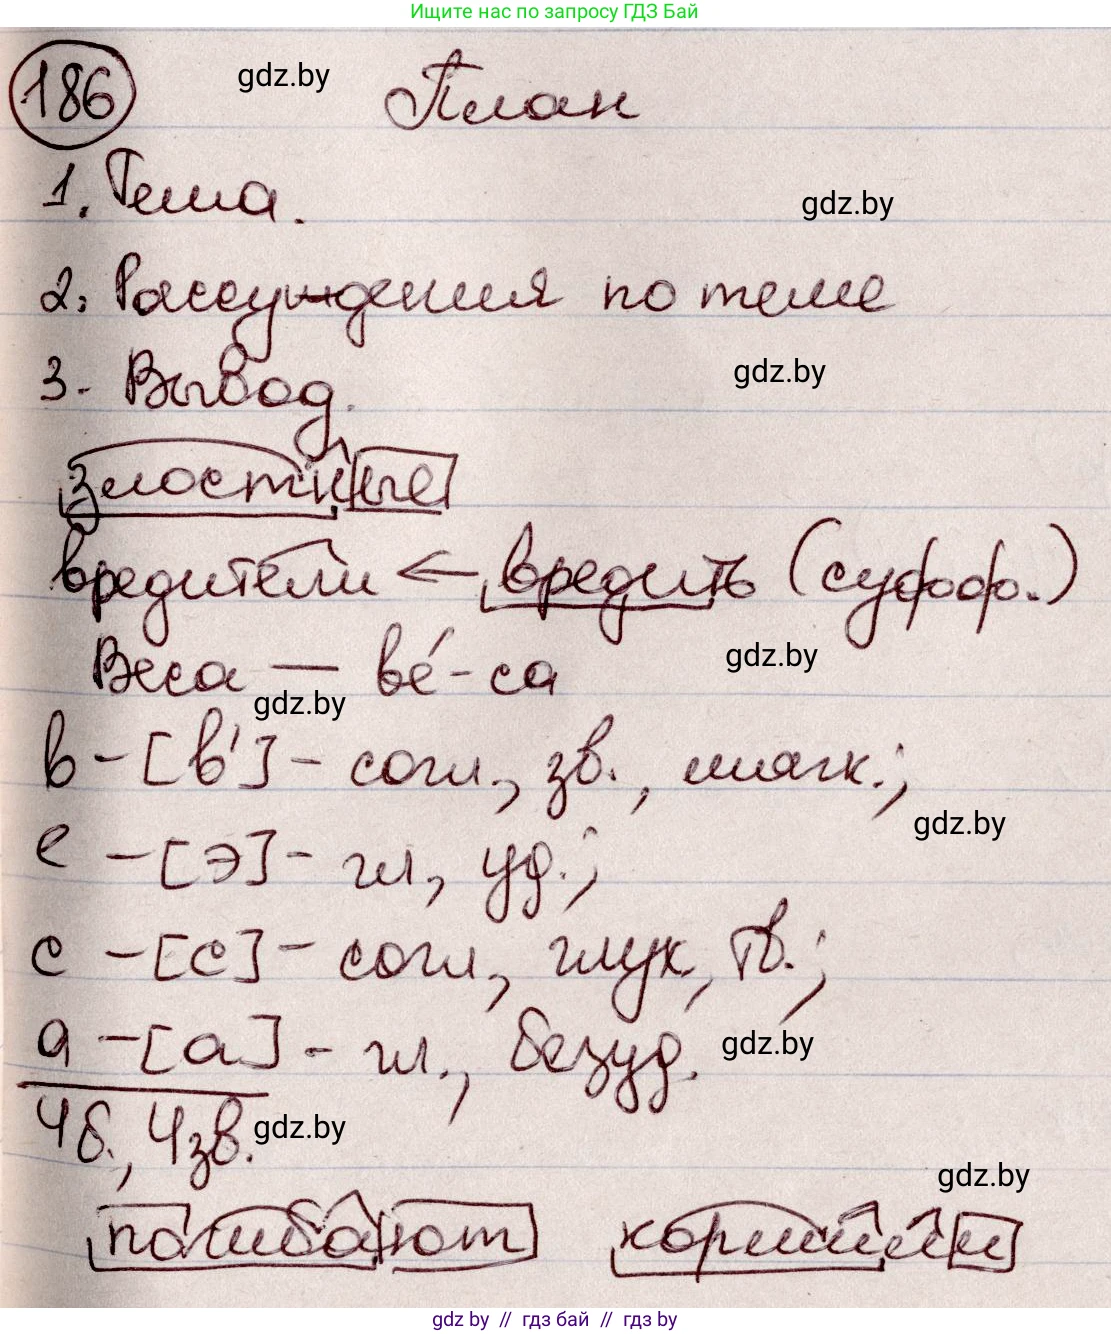 Ищите нас по запросу ГДЗ Бай
186 gdz.by План
1. Тема.
gdz.by
2. Рассуждения по теме
gdz.by
3. Вывод.
злостные
вредители ← вредить (суффф.)
gdz.by
Веса — ве́-са
gdz.by
в – [в'] – согл., зв., мягк.;
gdz.by
е – [э] – гл, уд.;
с – [с] – согл, глух, тв.;
а – [а] – гл., безуд.
gdz.by
4б., 4зв.
gdz.by
gdz.by
погибают кормили
gdz by // гдз бай // гдз by